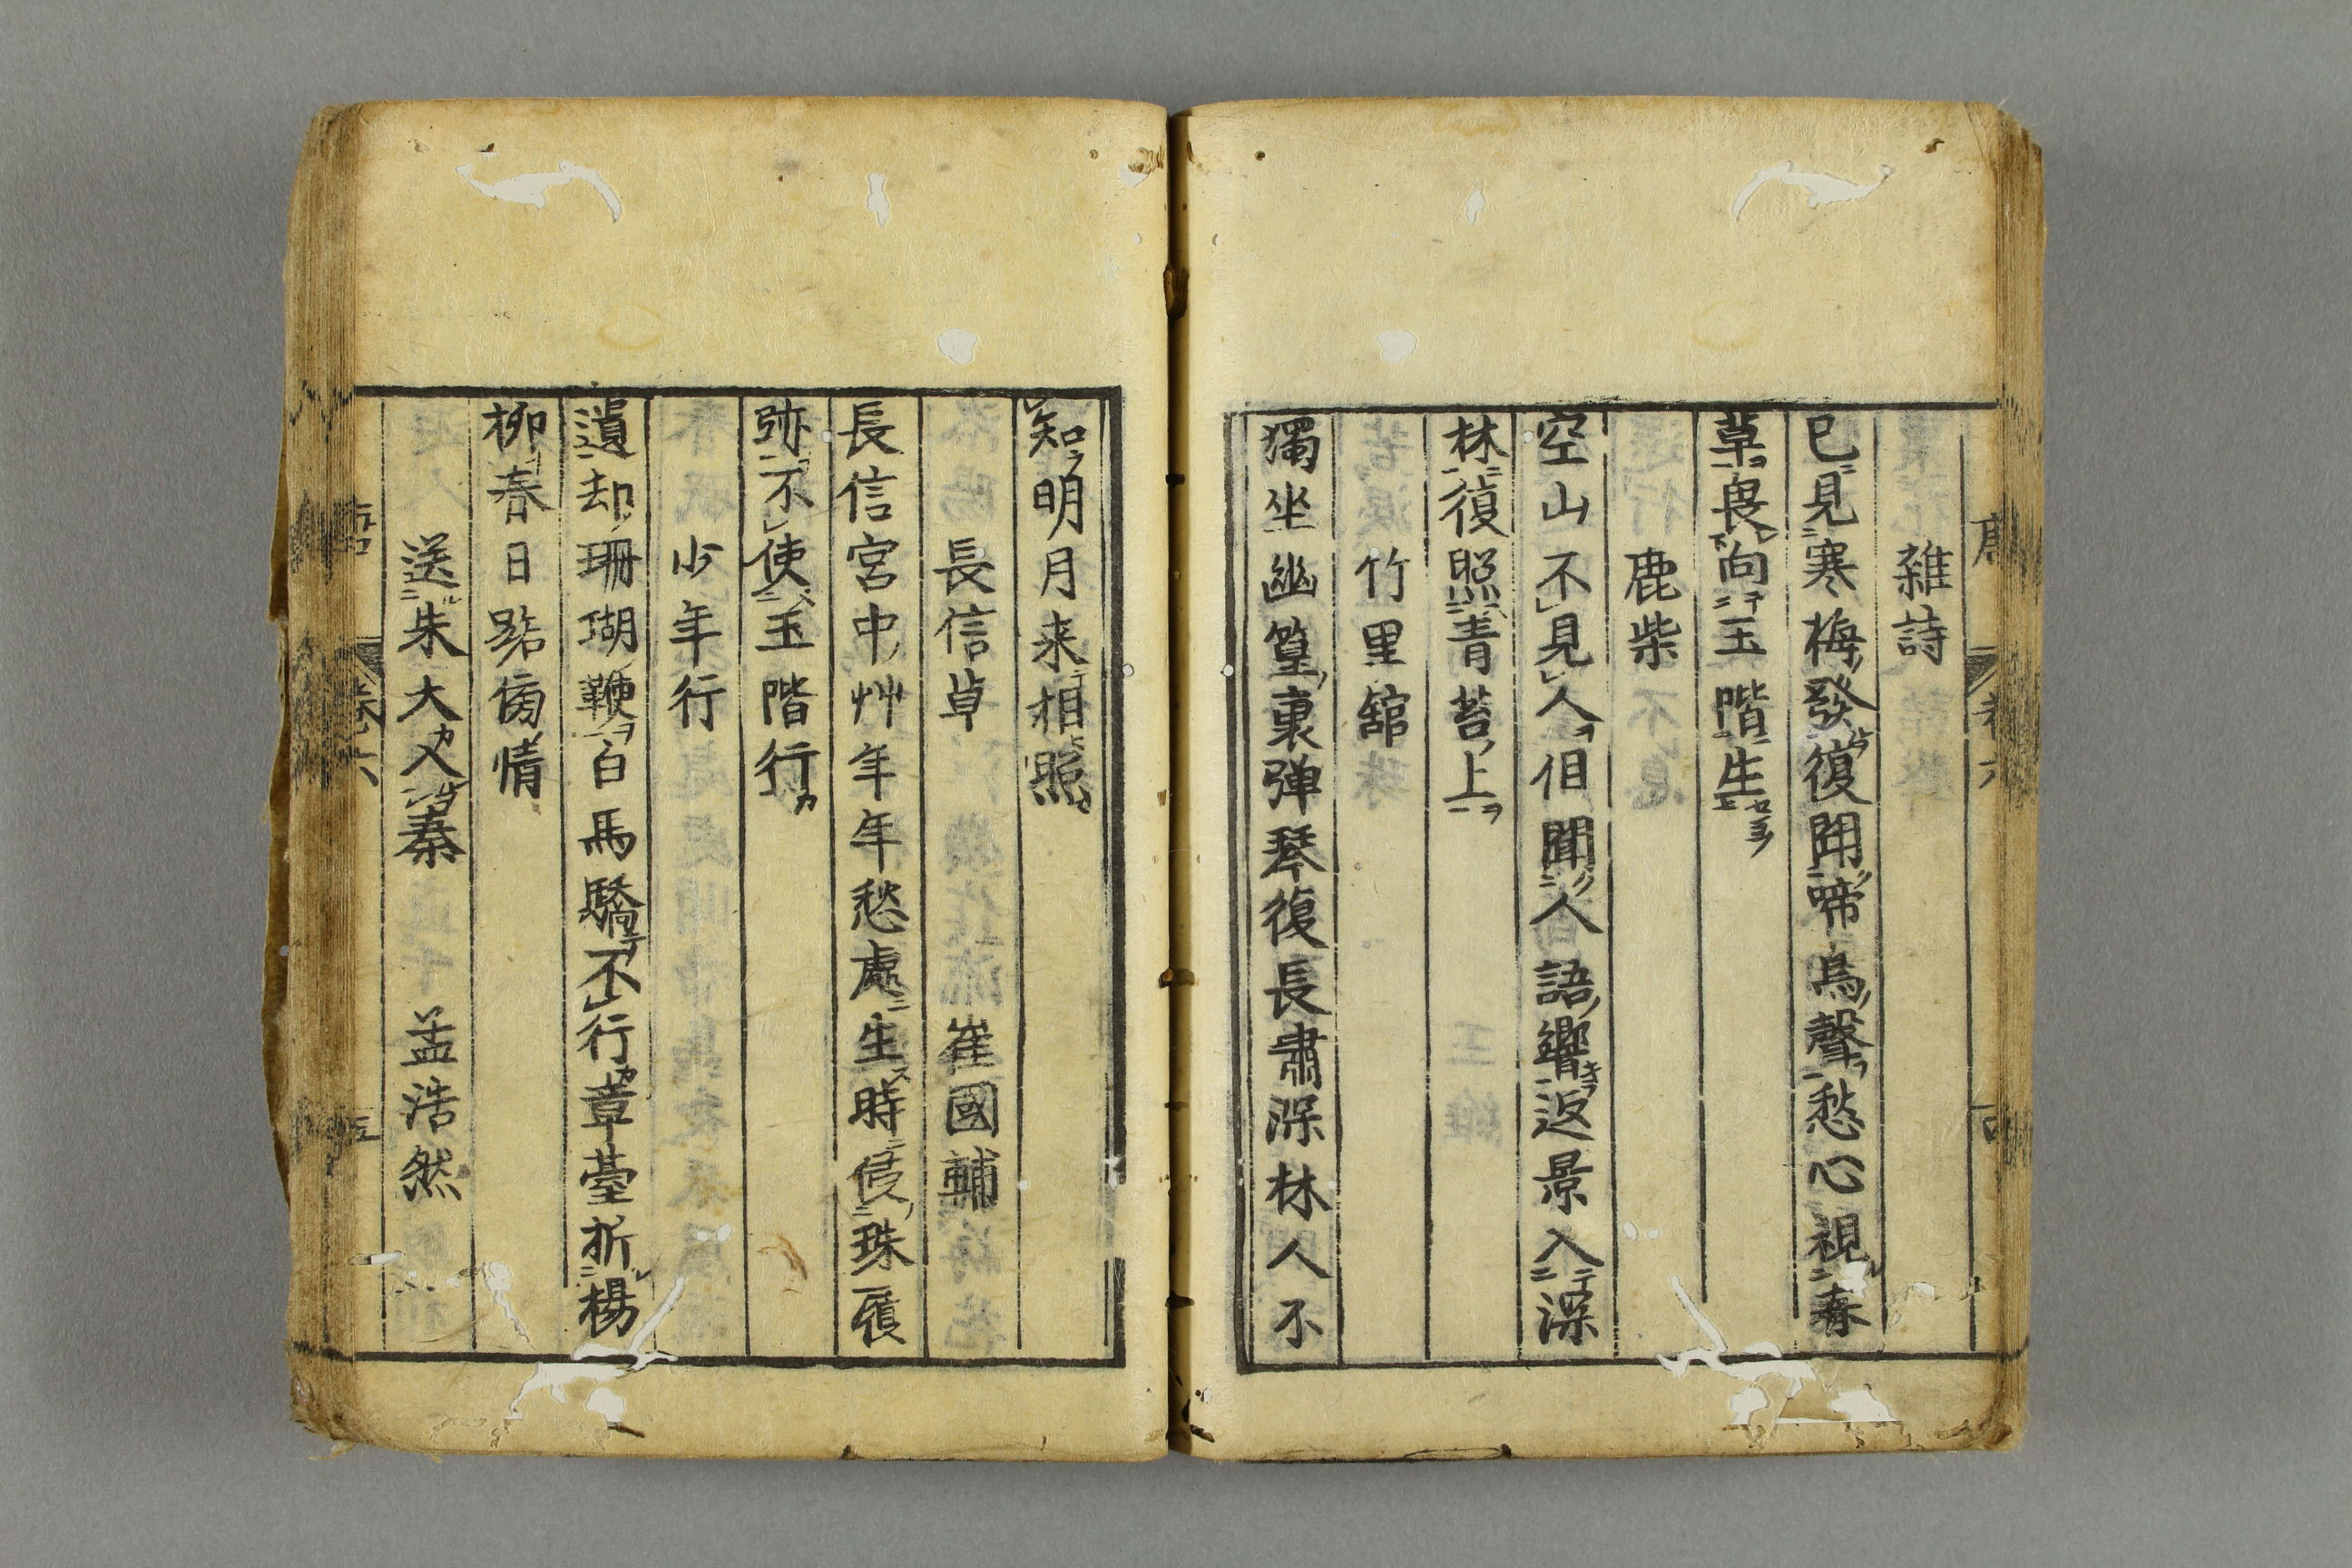 雜詩
已見寒梅發復聞啼鳥聲愁心視春
草畏向玉階生
鹿柴
空山不見人但聞人語響返景入深
林復照青苔上
竹里舘
獨坐幽篁裏弾琴復長肅深林人不
知明月来相照
長信草 崔國輔
長信宮中艸年年愁處生時侵珠履
跡不使玉階行
少年行
遺却珊瑚鞭白馬驕不行章薹折楊
柳春日路傍情
送朱大入秦 孟浩然